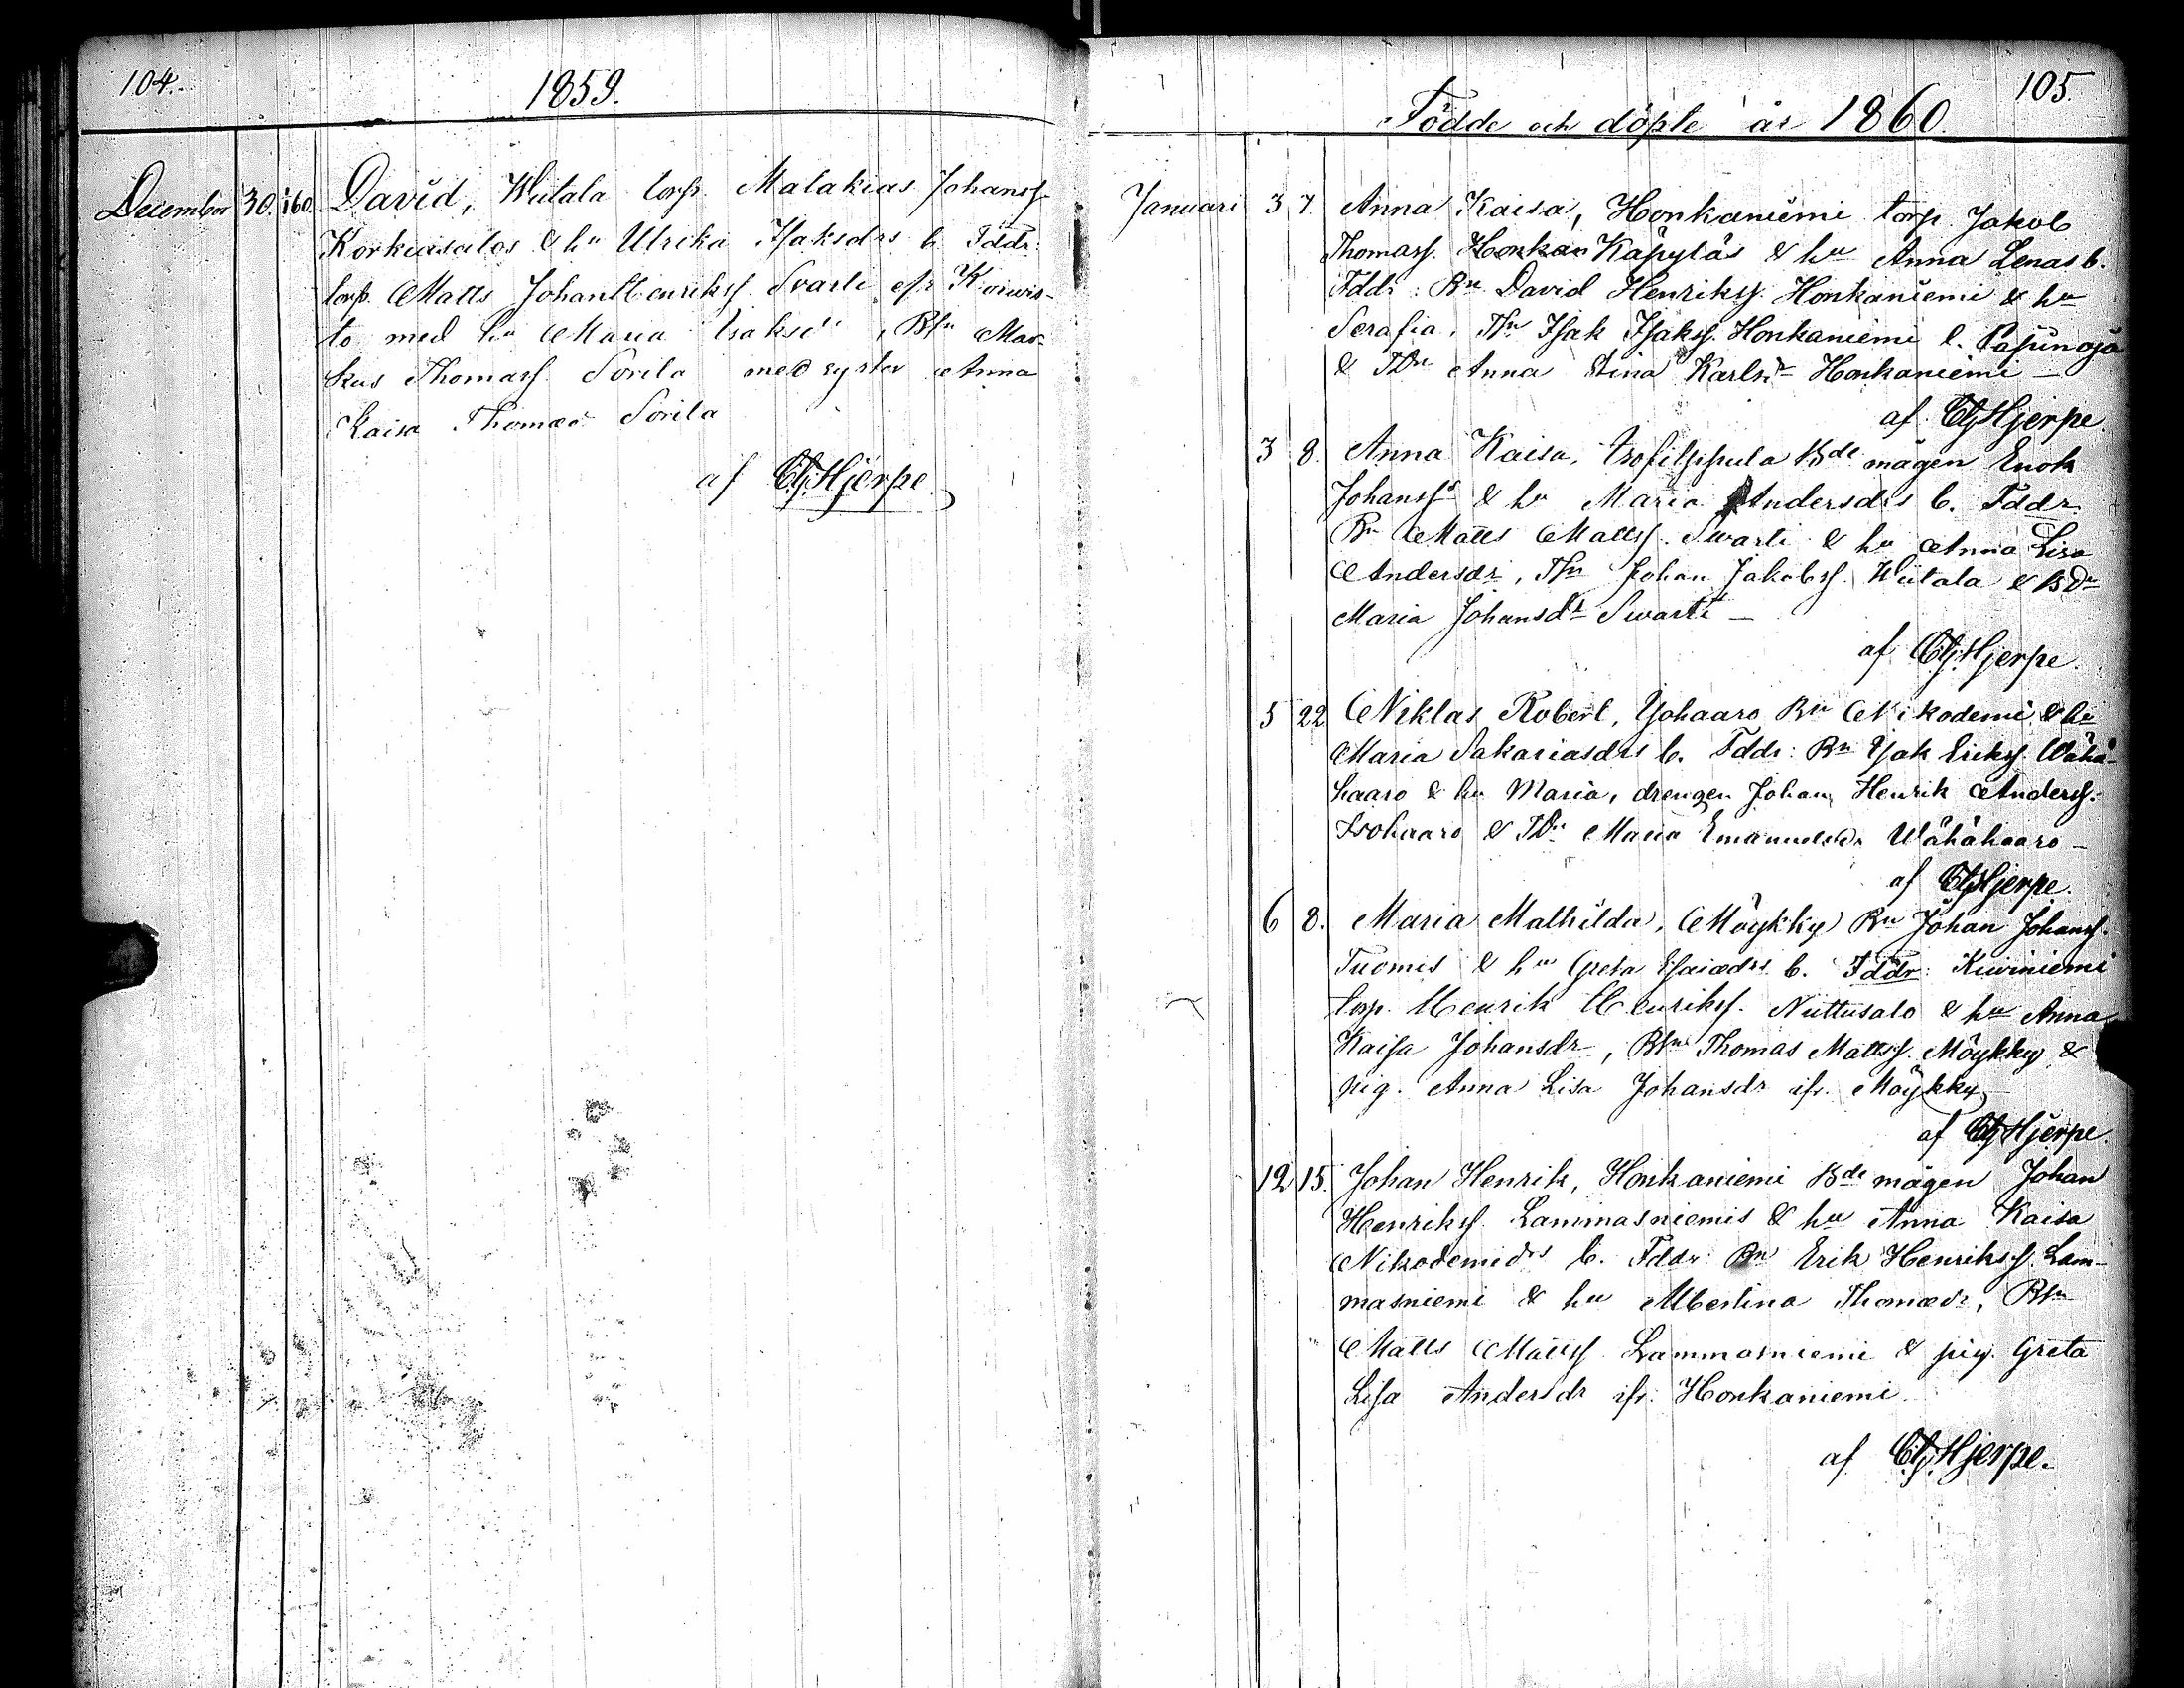 104.
1859.
December 30. 1 60. David, Wiitala torp. Malakias Johanss.
Korkiasalos & hu Ulrika Isaksdrs b. Fddr:
torp. Matts Johan Henrikss. Svarti ifr Koiwis-
to med hu Maria Isaksdr, Bsn Mar-
kus Thomass. Sorila med syster Anna
Kaisa Thomædr Sorila
af CGHjerpe
105.
Födde och döpte år 1860.
Januari 3 7. Anna Kaisa, Honkaniemi torp. Jakob
Thomass. Honkan Käpyläs & hu Anna Lenas b.
Fddr: Bn David Henrikss. Honkaniemi & hu
Serafia, Tsn Isak Isakss. Honkaniemi l. Pajunoja
& TDn Anna Stina Karlsdr Honkaniemi —
af CGHjerpe.
3 8. Anna Kaisa, Isofilppula Bde mågen Enok
Johanss & hu Maria Andersdrs b. Fddr.
Bn Matts Mattss. Swarti & hu Anna Lisa
Andersdr, Tsn Johan Jakobss. Wiitala & BDn
Maria Johansdr Swarti —
af CGHjerpe.
5 22 Niklas Robert, Ysohaaro Bn Nikodemi & hu
Maria Sakariasdrs b. Fddr: Bn Isak Erikss. Wähä-
haaro & hu Maria, drengen Johan Henrik Anderss.
Isohaaro & TDn Maria Emanuelsdr Wähähaaro —
af CGHjerpe.
6 8. Maria Mathilda, Möykky Bn Johan Johanss.
Tuomis & hu Greta Esaiædrs b. Fddr: Kiviniemi
torp. Henrik Henrikss. Niittusalo & hu Anna
Kaisa Johansdr, Bsn Thomas Mattss. Möykky &
pig. Anna Lisa Johansdr ifr. Möykky
af CGHjerpe.
12 15. Johan Henrik, Honkaniemi Bde mågen Johan
Henrikss. Lammasniemis & hu Anna Kaisa
Nikodemidrs b. Fddr: Bn Erik Henrikss. Lam-
masniemi & hu Albertina Thomædr, Bsn
Matts Mattss Lammasniemi & pig. Greta
Lisa Andersdr ifr. Honkaniemi
af CGHjerpe.